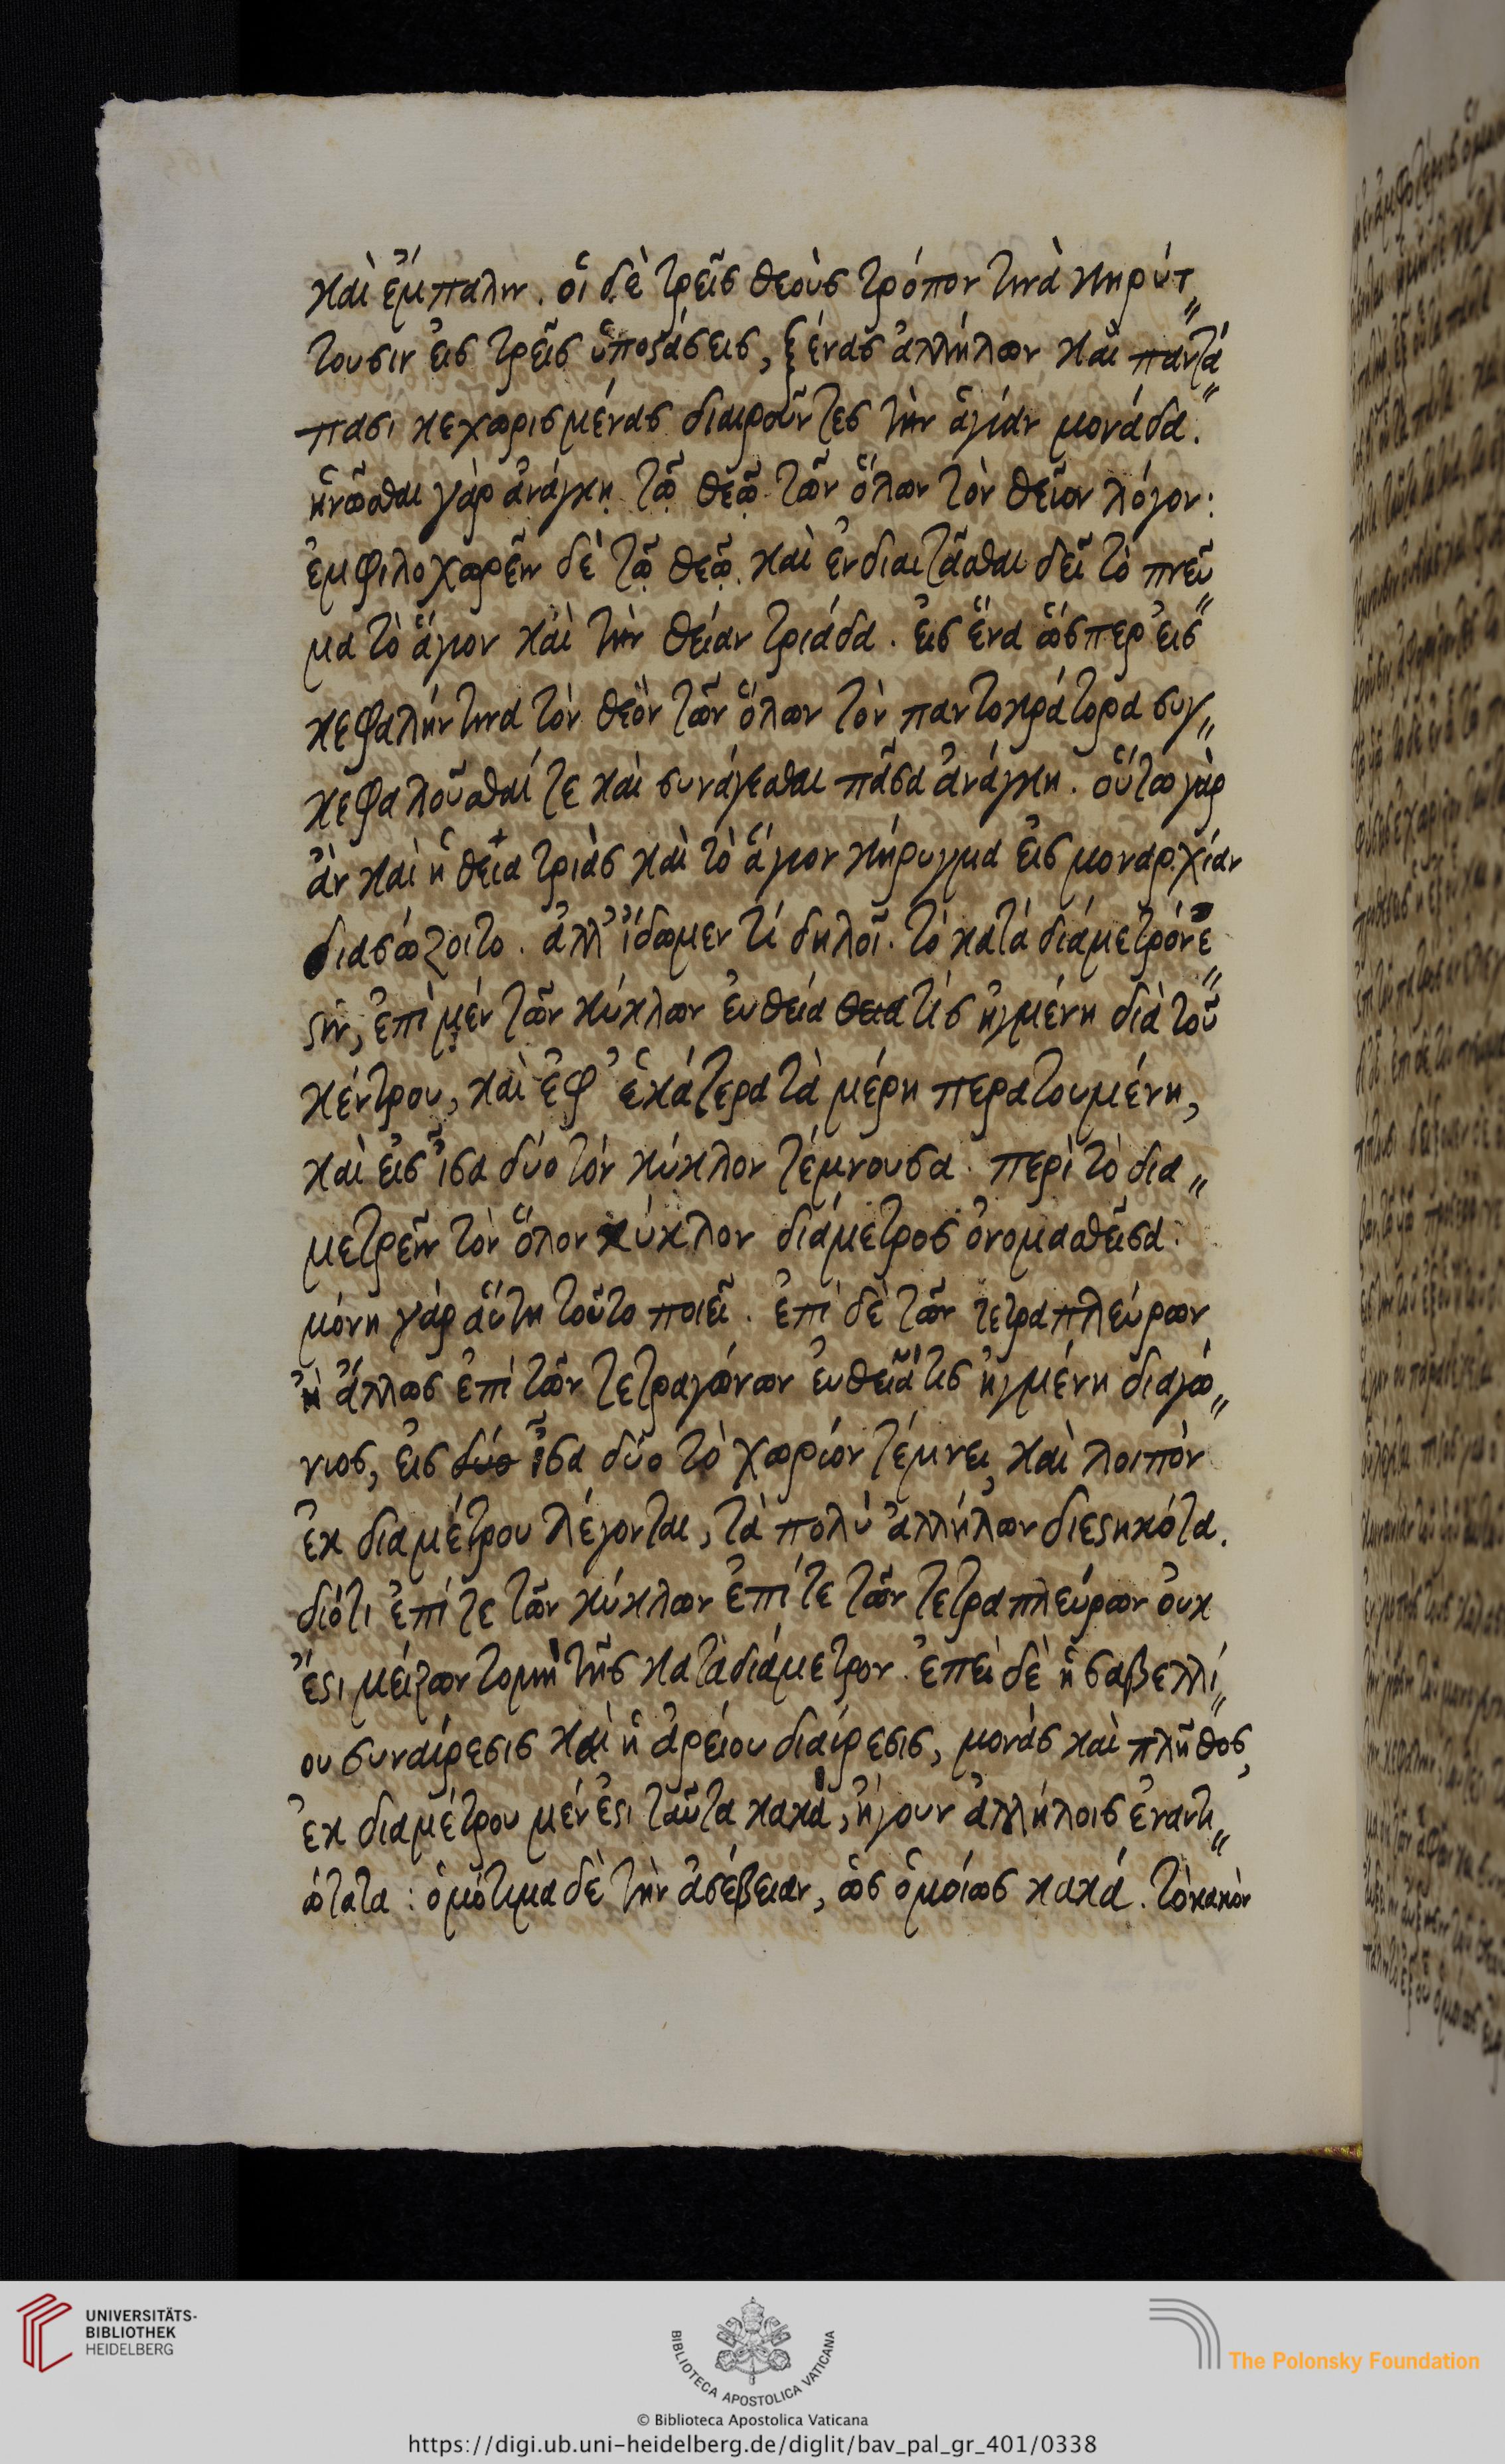 καὶ ἔμπαλιν. οἱ δὲ τρεῖς θεοὺς τρόπον τινὰ κηρύτ
τουσιν εἰς τρεῖς ὑποστάσεις, ξένας ἀλλήλων καὶ παντά
πασι κεχωρισμένας διαιροῦντες τὴν ἁγίαν μονάδα.
ἡνῶσθαι γὰρ ἀνάγκη τῷ θεῷ τῶν ὅλων τὸν θεῖον λόγον:
ἐμφιλοχωρεῖν δὲ τῷ θεῷ καὶ ἐνδιαιτᾶσθαι δεῖ τὸ πνεῦ
μα τὸ ἅγιον καὶ τὴν θείαν τριάδα. εἰς ἕνα ὥσπερ εἰς
κεφαλήν τινα τὸν θεὸν τῶν ὅλων τὸν παντοκράτορα συγ
κεφαλοῦσθαί τε καὶ συνάγεσθαι πᾶσα ἀνάγκη. οὕτω γὰρ
ἂν καὶ ἡ θεία τριὰς καὶ τὸ ἅγιον κήρυγμα εἰς μοναρχίαν
διασώζοιτο. ἀλλ' ἴδωμεν τί δηλοῖ. τὸ κατὰ διάμετρόν ἐ
στιν, ἐπὶ μὲν τῶν κύκλων εὐθεία θεια τίς ἠγμένη διὰ τοῦ
κέντρου, καὶ ἐφ' ἑκάτερα τὰ μέρη περατουμένη,
καὶ εἰς ἴσα δύο τὸν κύκλον τέμνουσα. περὶ τὸ δια
μετρεῖν τὸν ὅλον κύκλον διάμετρος ὀνομασθεῖσα.
μόνη γὰρ αὕτη τοῦτο ποιεῖ. ἐπὶ δὲ τῶν τετραπλεύρων
ἢ ἄλλως ἐπὶ τῶν τετραγώνων εὐθεῖά τις ἠγμένη διαγώ
νιος, εἰς δύο ἴσα δύο τὸ χωρίον τέμνει, καὶ λοιπὸν
ἐκ διαμέτρου λέγονται, τὰ πολὺ ἀλλήλων διεστηκότα.
διότι ἐπί τε τῶν κύκλων ἐπί τε τῶν τετραπλεύρων οὐκ
ἔστι μείζων τομὴ τῆς κατὰ διάμετρον. ἐπεὶ δὲ ἡ σαβελλί
ου συναίρεσις καὶ ἡ ἀρείου διαίρεσις, μονὰς καὶ πλῆθος,
ἐκ διαμέτρου μέν ἐστι ταῦτα κακὰ, ἤγουν ἀλλήλοις ἐναντι
ώτατα: ὁμότιμα δὲ τὴν ἀσέβειαν, ὡς ὁμοίως κακά. τὸ κακὸν
UNIVERSITÄTS-
BIBLIOTHEK
HEIDELBERG
BIBLIOTECA APOSTOLICA VATICANA
The Polonsky Foundation
© Biblioteca Apostolica Vaticana
https://digi.ub.uni-heidelberg.de/diglit/bav_pal_gr_401/0338